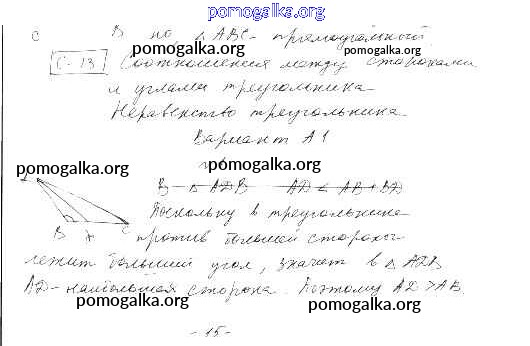 pomogalka.org
с В но △ ABC - прямоугольный.
pomogalka.org pomogalka.org
С-13 Соотношения между сторонами
и углами треугольника.
Неравенство треугольника.
Вариант А1
pomogalka.org pomogalka.org
В - △ ADB AD < AB + BD
Поскольку в треугольнике
B D C против большей стороны
лежит больший угол, значит в △ ADB
pomogalka.org
AD - наибольшая сторона. Поэтому AD > AB.
pomogalka.org pomogalka.org
- 15 -